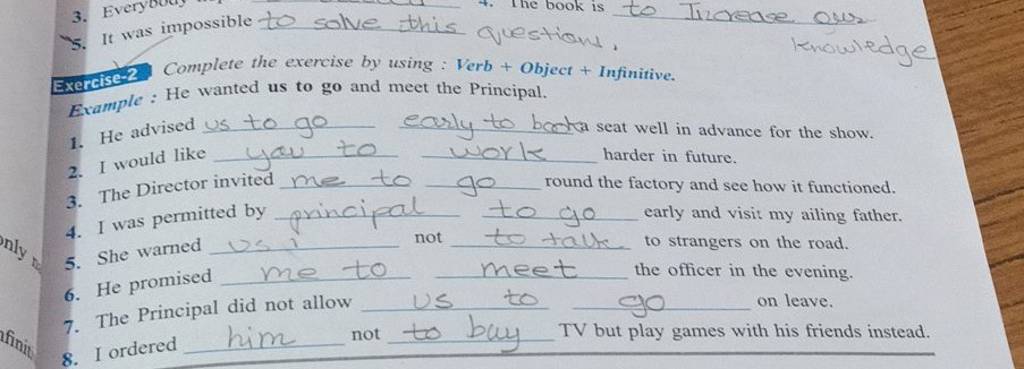 3. Everybody
4. The book is to Increase our knowledge
5. It was impossible to solve this questions.
Exercise-2 Complete the exercise by using : Verb + Object + Infinitive.
Example : He wanted us to go and meet the Principal.
1. He advised us to go early to book a seat well in advance for the show.
2. I would like you to work harder in future.
3. The Director invited me to go round the factory and see how it functioned.
4. I was permitted by principal to go early and visit my ailing father.
5. She warned us not to talk to strangers on the road.
6. He promised me to meet the officer in the evening.
7. The Principal did not allow us to go on leave.
8. I ordered him not to buy TV but play games with his friends instead.